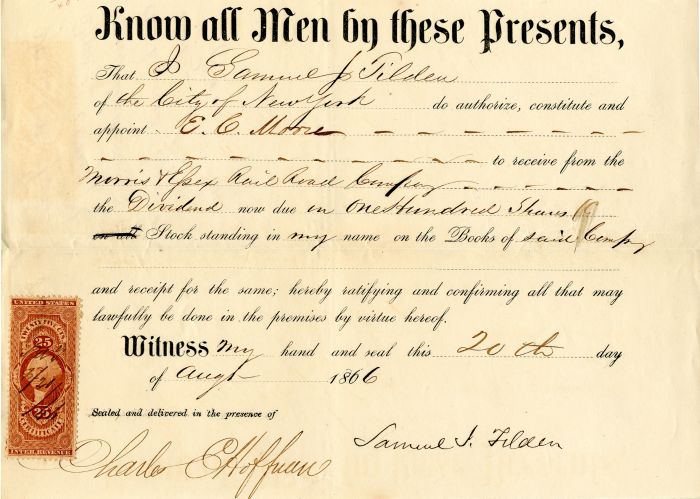 Know all Men by these Presents,
That I Samuel J Tilden
of the City of New York do authorize, constitute and
appoint E. C. Moore
to receive from the
Morris & Essex Rail Road Company
the Dividend now due in One Hundred Shares
on all Stock standing in my name on the Books of said Compy
and receipt for the same; hereby ratifying and confirming all that may
lawfully be done in the premises by virtue hereof.
Witness my hand and seal this 20th day
of Augt 1866
Sealed and delivered in the presence of
Samuel J. Tilden
Charles E Hoffman
UNITED STATES
TWENTY FIVE CENTS
25
25
CERTIFICATE
INTER. REVENUE